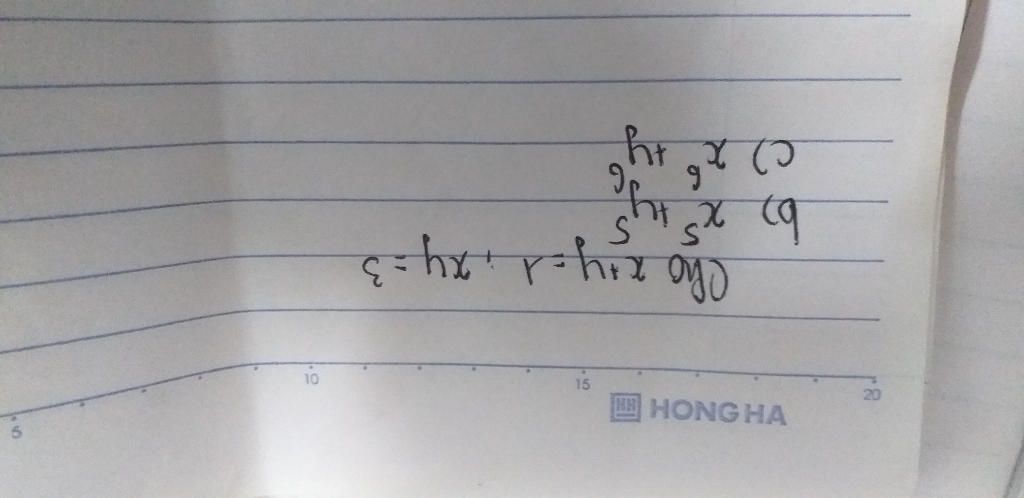 Cho x+y=1; xy=3
b) x⁵+y⁵
c) x⁶+y⁶
5
10
15
20
HH HONG HA